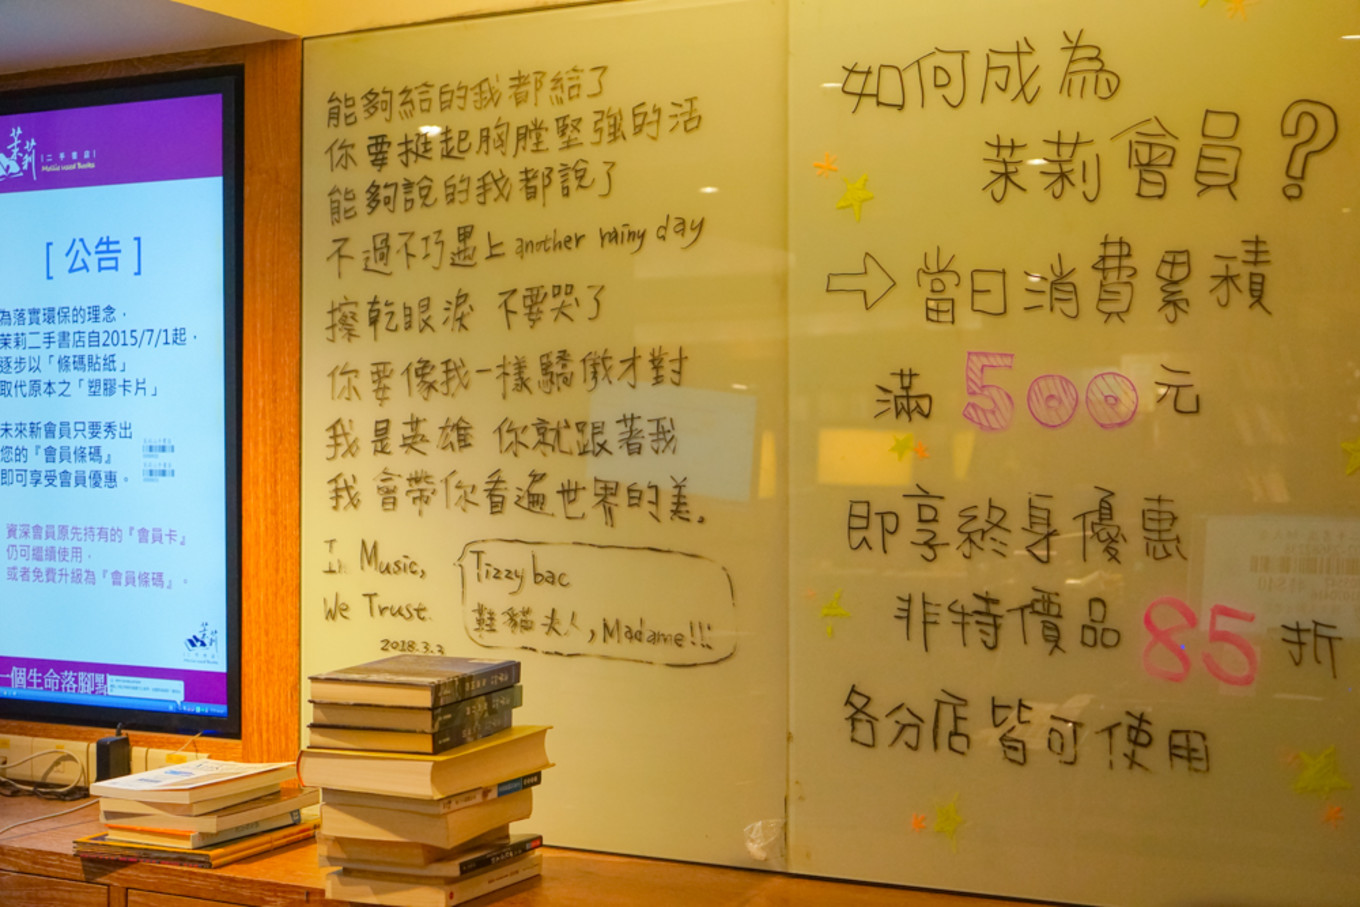 茉莉
二手書店
Mollie used Books
[ 公告 ]
為落實環保的理念，
茉莉二手書店自2015/7/1起，
逐步以「條碼貼紙」
取代原本之「塑膠卡片」
未來新會員只要秀出
您的『會員條碼』
即可享受會員優惠。
資深會員原先持有的『會員卡』
仍可繼續使用，
或者免費升級為『會員條碼』。
茉莉
一個生命落腳
能夠給的我都給了
你要挺起胸膛堅強的活
能夠說的我都說了
不過不巧遇上 another rainy day
擦乾眼淚 不要哭了
你要像我一樣驕傲才對
我是英雄 你就跟著我
我會帶你看遍世界的美。
In Music,
We Trust.
2018.3.3
Tizzy bac
鞋貓夫人, Madame!!!
如何成為
茉莉會員?
→當日消費累積
滿 500 元
即享終身優惠
非特價品 85 折
各分店皆可使用